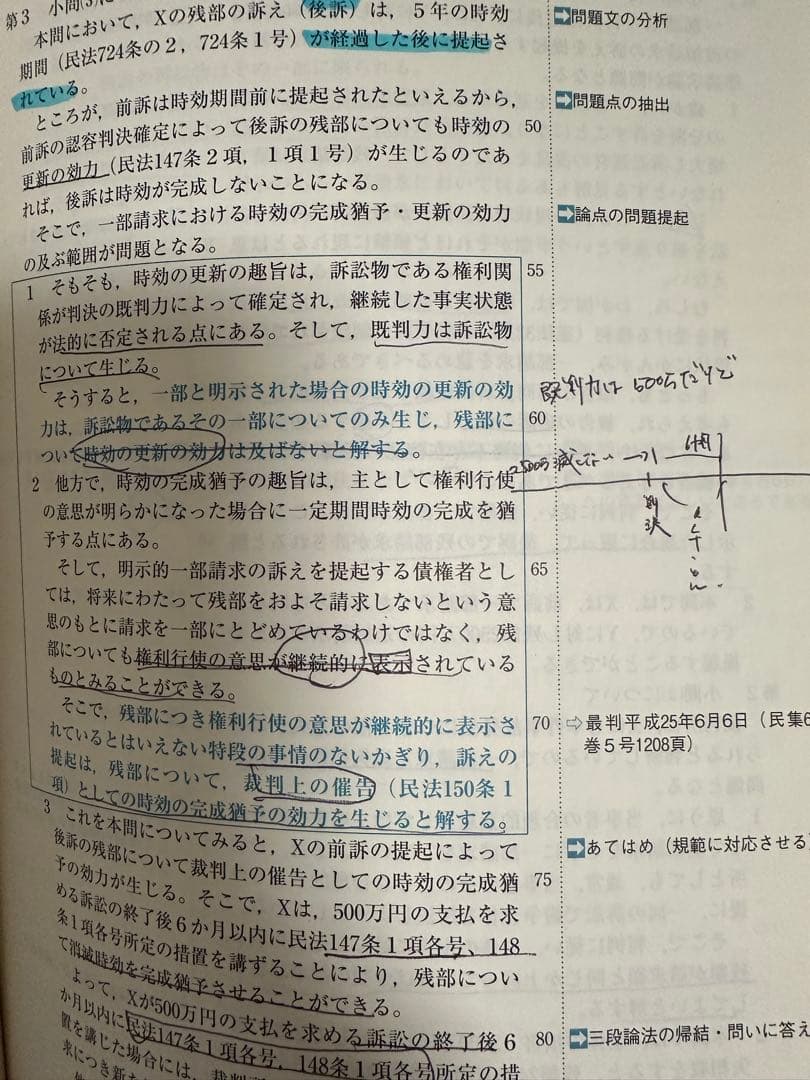 第3 小問
本問において，Xの残部の訴え（後訴）は，5年の時効
期間（民法724条の2，724条1号）が経過した後に提起さ
れている。
ところが，前訴は時効期間前に提起されたといえるから，
前訴の認容判決確定によって後訴の残部についても時効の
更新の効力（民法147条2項，1項1号）が生じるのであ
れば，後訴は時効が完成しないことになる。
そこで，一部請求における時効の完成猶予・更新の効力
の及ぶ範囲が問題となる。
1 そもそも，時効の更新の趣旨は，訴訟物である権利関
係が判決の既判力によって確定され，継続した事実状態
が法的に否定される点にある。そして，既判力は訴訟物
について生じる。
そうすると，一部と明示された場合の時効の更新の効
力は，訴訟物であるその一部についてのみ生じ，残部に
ついて時効の更新の効力は及ばないと解する。
2 他方で，時効の完成猶予の趣旨は，主として権利行使
の意思が明らかになった場合に一定期間時効の完成を猶
予する点にある。
そして，明示的一部請求の訴えを提起する債権者とし
ては，将来にわたって残部をおよそ請求しないという意
思のもとに請求を一部にとどめているわけではなく，残
部についても権利行使の意思が継続的に表示されている
ものとみることができる。
そこで，残部につき権利行使の意思が継続的に表示さ
れているとはいえない特段の事情のないかぎり，訴えの
提起は，残部について，裁判上の催告（民法150条1
項）としての時効の完成猶予の効力を生じると解する。
3 これを本問についてみると，Xの前訴の提起によって
後訴の残部について裁判上の催告としての時効の完成猶
予の効力が生じる。そこで，Xは，500万円の支払を求
める訴訟の終了後6か月以内に民法147条1項各号、148
条1項各号所定の措置を講ずることにより，残部につい
て消滅時効を完成猶予させることができる。
よって，Xが500万円の支払を求める訴訟の終了後6
か月以内に民法147条1項各号，148条1項各号所定の措
置を講じた場合には，
求につき新た
➡問題文の分析
➡問題点の抽出
50
➡論点の問題提起
55
既判力は500万だけで
60
6カ月
判決
65
70
⇨最判平成25年6月6日（民集6
巻5号1208頁）
➡あてはめ（規範に対応させる
75
80
➡三段論法の帰結・問いに答え